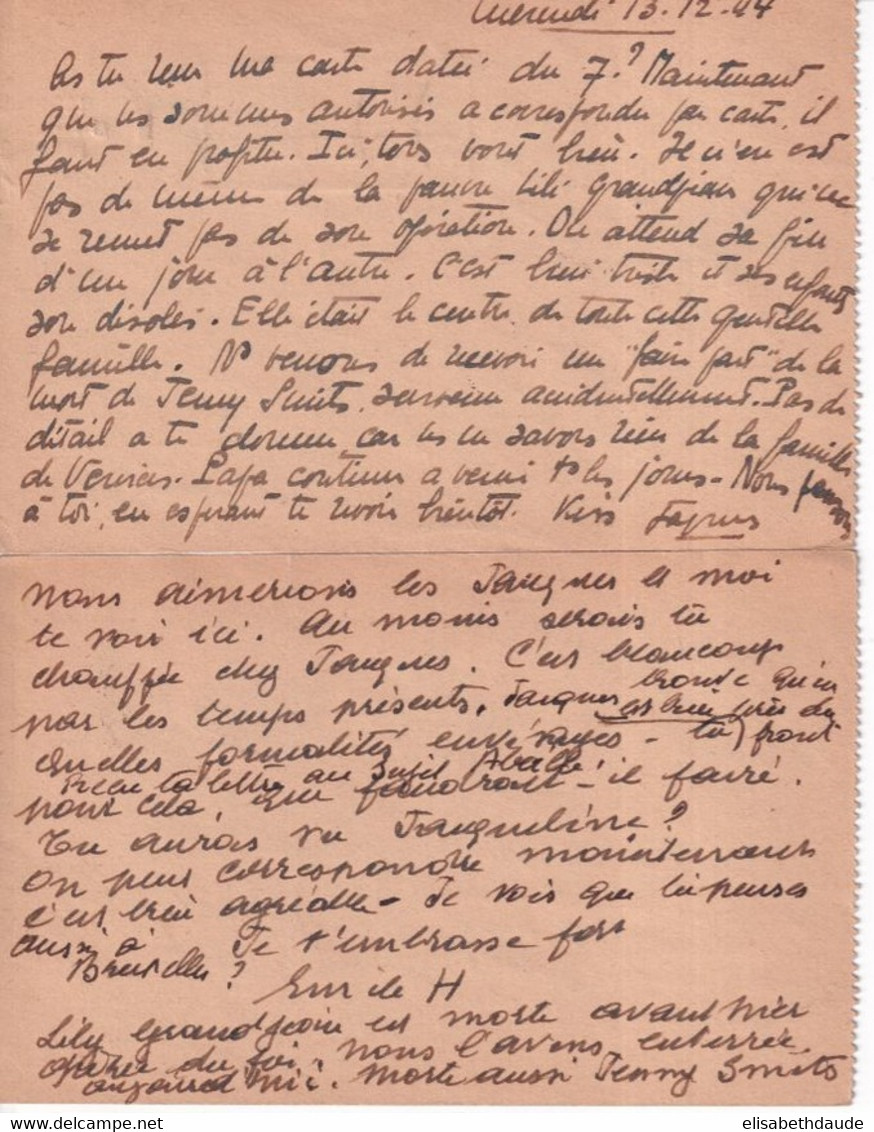 Mercredi 13.12.44
As tu reçu ma carte datée du 7? Maintenant
que ns sommes autorisés a correspondre par carte, il
faut en profiter. Ici, tous vont bien. Il n'en est
pas de même de la pauvre Lili Grandjean qui ne
se remet pas de son opération. On attend sa fin
d'un jour à l'autre. C'est bien triste et ses enfants
sont désolés. Elle était le centre de toute cette gentille
famille. Ns venons de recevoir un "faire part" de la
mort de Jenny Smits, survenue accidentellement. Pas de
détail a te donner car ns ne savons rien de la famille
de Verviers. Papa continue a venir ts les jours - Nous pensons
à toi, en espérant te revoir bientôt. Kiss Jaques
nous aimerions les Jacques et moi
te voir ici. Au moins serais tu
chauffée chez Jacques. C'est beaucoup
par les temps présents. Jacques trouve qu'on
est bien près du front
quelles formalités envisages-tu
Reçu ta lettre au sujet
pour cela, que faudrait-il faire.
Tu auras vu Jacqueline?
On peut correspondre maintenant
c'est bien agréable - Je vois que tu penses
aussi à Bruxelles? Je t'embrasse fort
H
Lily Grandjean est morte avant hier
opérée du foi, nous l'avons enterrée
aujourd'hui. Morte aussi Jenny Smits
elisabethdaude